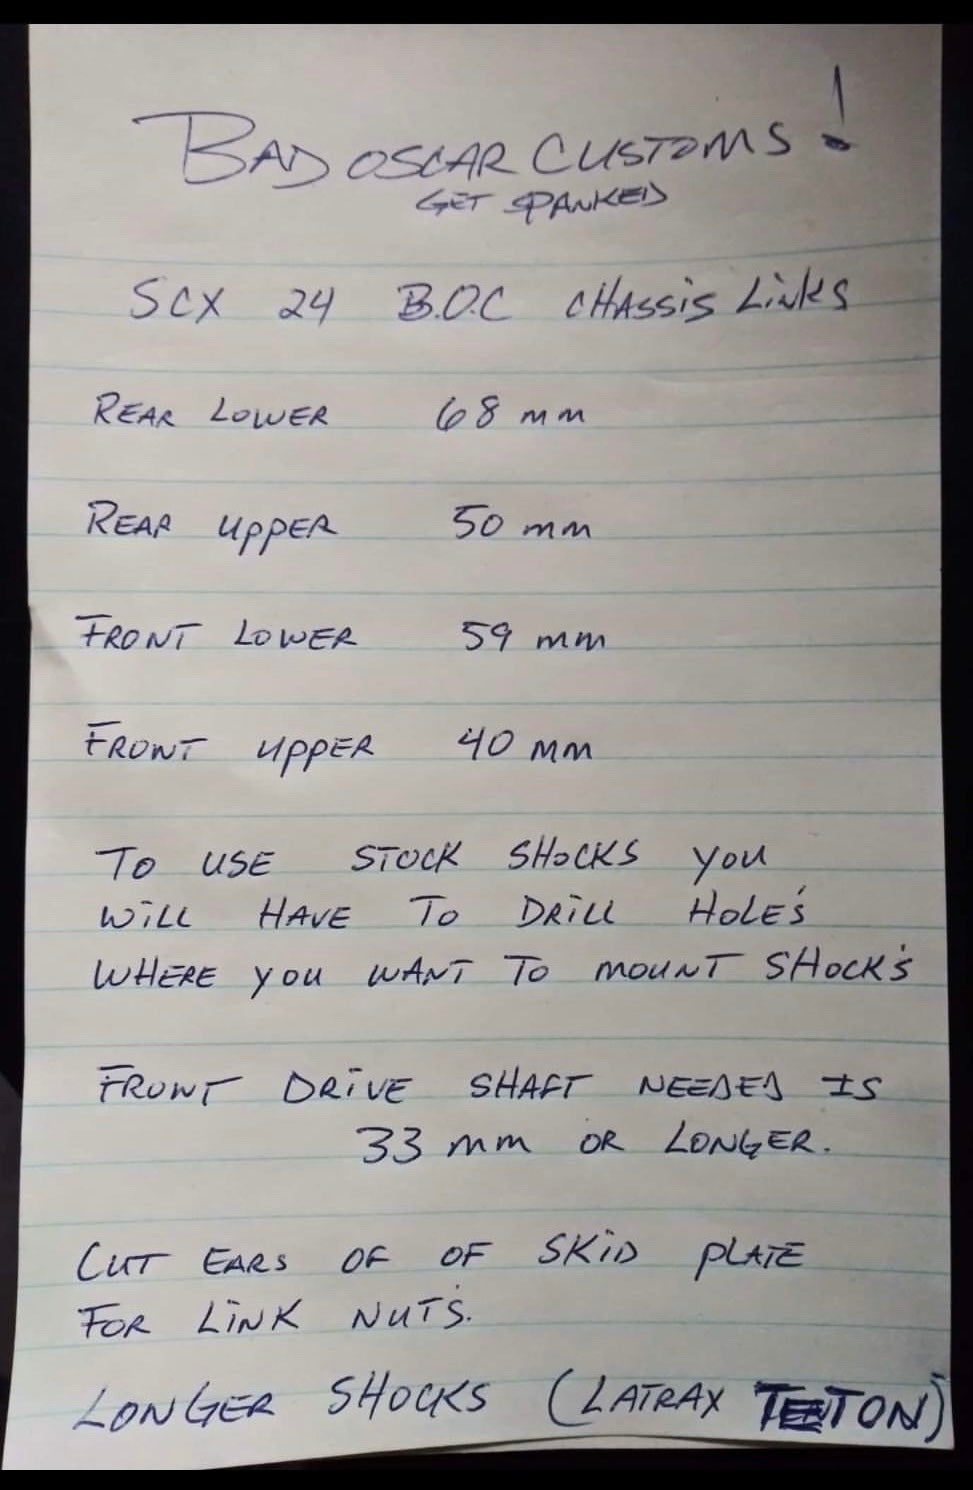 BAD OSCAR CUSTOMS!
GET SPANKED
SCX 24 B.O.C CHASSIS LINKS
REAR LOWER 68 mm
REAR UPPER 50 mm
FRONT LOWER 59 mm
FRONT UPPER 40 mm
TO USE STOCK SHOCKS YOU
WILL HAVE TO DRILL HOLE'S
WHERE YOU WANT TO MOUNT SHOCK'S
FRONT DRIVE SHAFT NEEDED IS
33 mm OR LONGER.
CUT EARS OF OF SKID PLATE
FOR LINK NUT'S.
LONGER SHOCKS (LATRAX TETON)